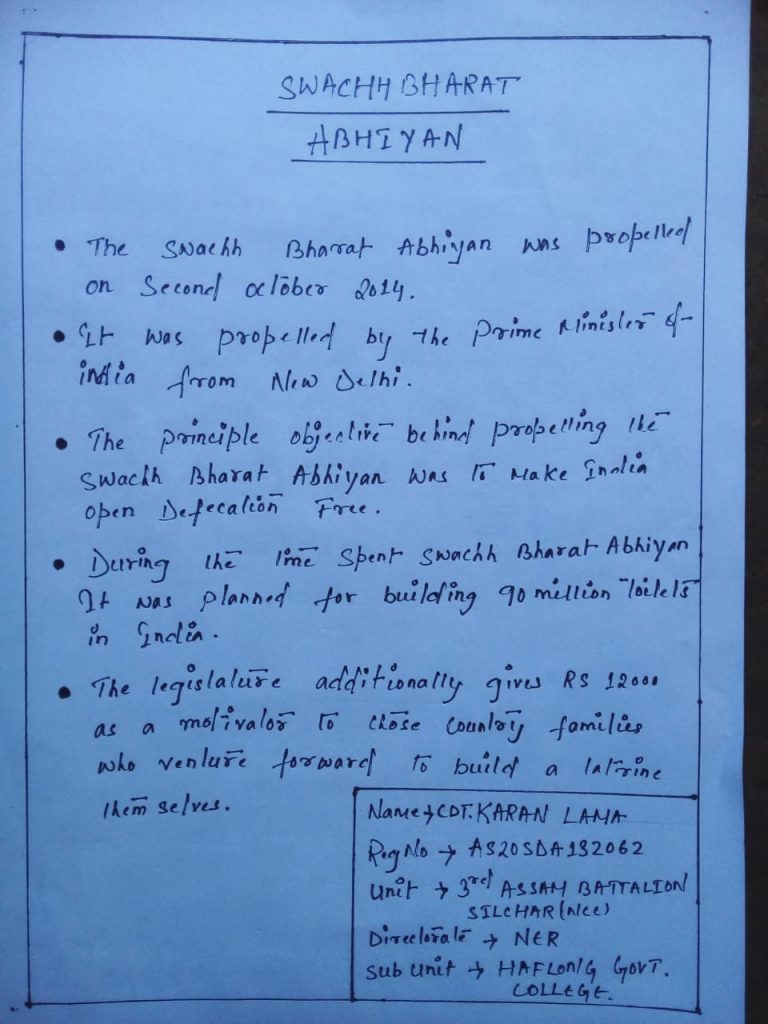 SWACHH BHARAT
ABHIYAN
• The Swachh Bharat Abhiyan was propelled
on Second october 2014.
• It was propelled by the Prime Minister of
india from New Delhi.
• The principle objective behind propelling the
Swachh Bharat Abhiyan was to make India
open Defecation Free.
• During the time spent swachh Bharat Abhiyan
It was planned for building 90 million toilets
in India.
• The legislature additionally gives RS 12000
as a motivator to those country families
who venture forward to build a latrine
them selves.
Name → CDT. KARAN LAMA
Reg No → AS20SDA132062
Unit → 3rd ASSAM BATTALION
SILCHAR (NCC)
Directorate → NER
Sub Unit → HAFLONG GOVT.
COLLEGE.